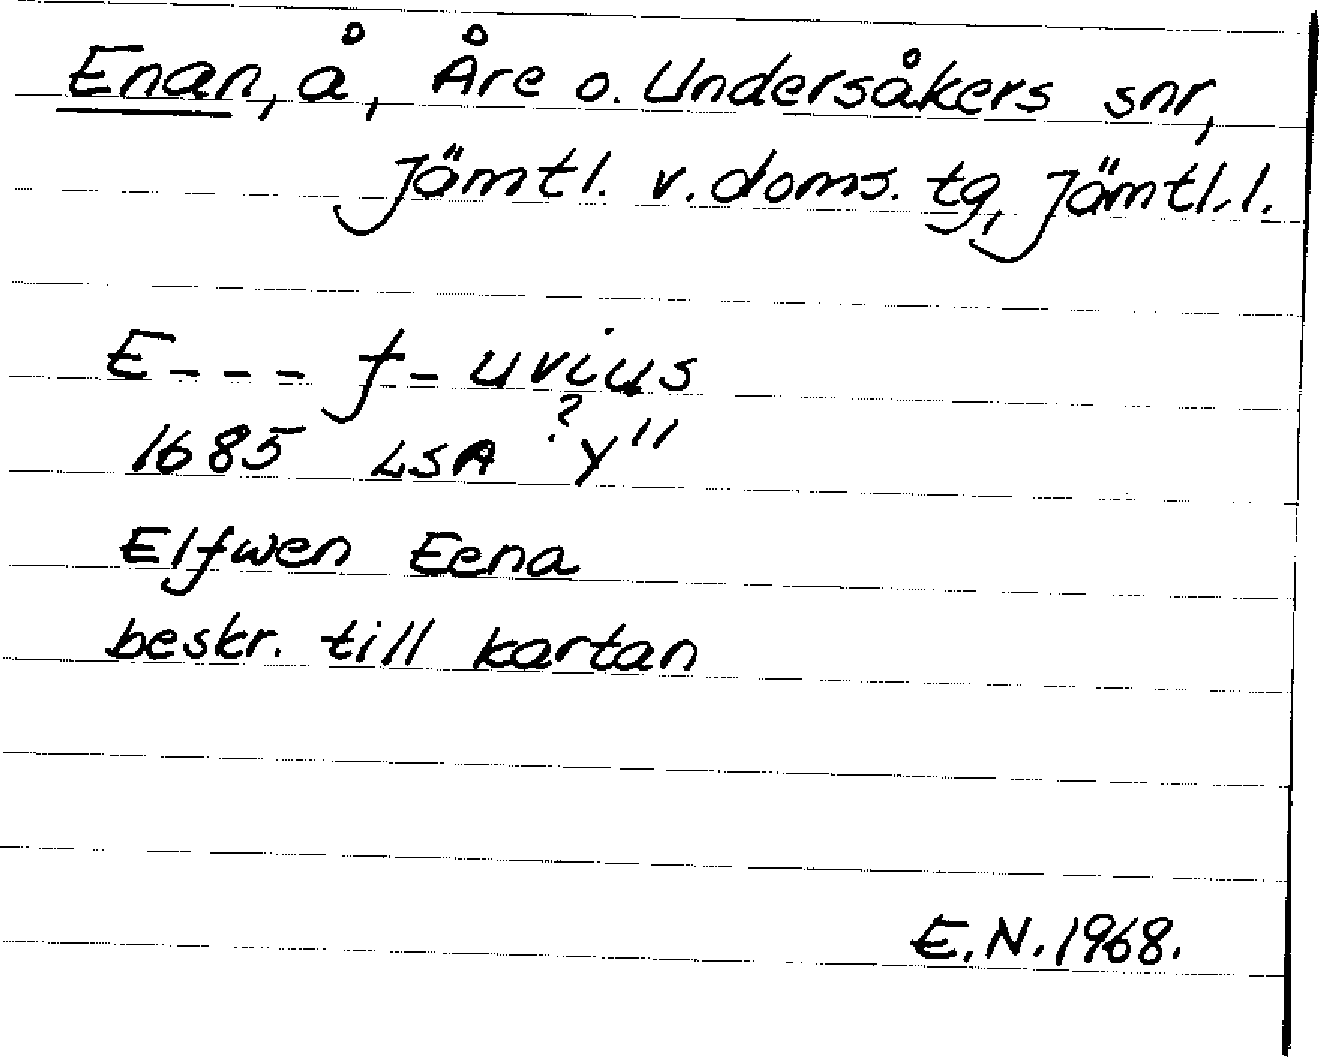 Enan, å, Åre o. Undersåkers snr,
Jämtl. v. doms. tg, Jämtl. l.
E - - - f - uvius
1685 LSA ? Y 11
Elfwen Eena
beskr. till kartan
E. N. 1968.